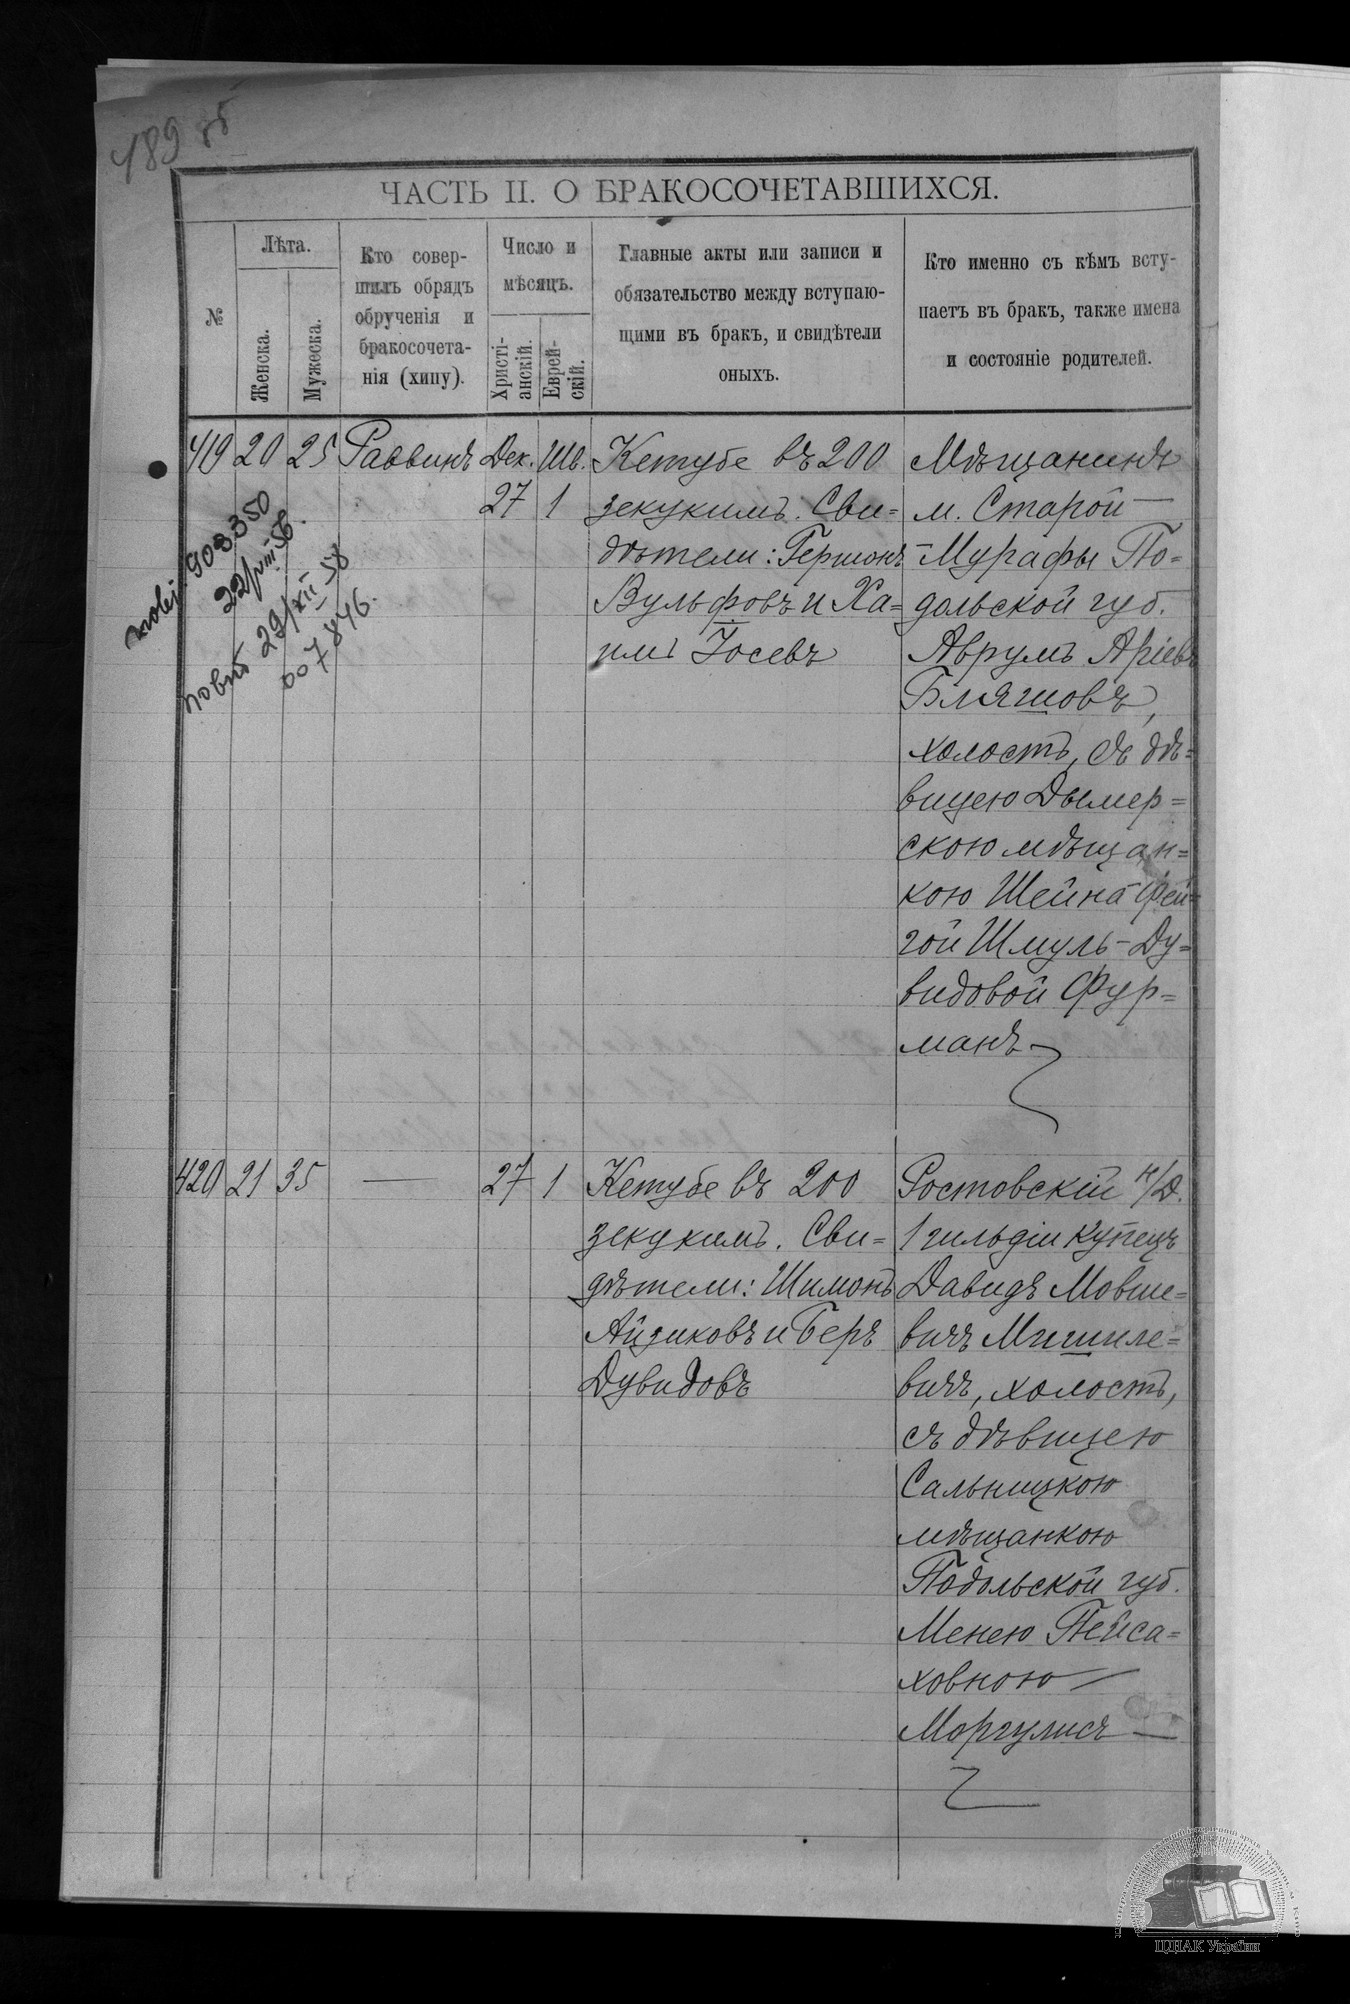 489 об
ЧАСТЬ II. О БРАКОСОЧЕТАВШИХСЯ.
№
Лѣта.
Женска.
Мужеска.
Кто совер-
шилъ обрядъ
обрученія и
бракосочета-
нія (хипу).
Число и
мѣсяцъ.
Христі-
анскій.
Еврей-
скій.
Главные акты или записи и
обязательство между вступаю-
щими въ бракъ, и свидѣтели
оныхъ.
Кто именно съ кѣмъ всту-
паетъ въ бракъ, также имена
и состояніе родителей.
419 20 25 Раввинъ Дек. 27 Шв. 1
Кетубе въ 200
зекукимъ. Сви=
дѣтели: Гершонъ
Вульфовъ и Ха=
имъ Іосевъ
Мѣщанинъ
м. Старой
Мурафы По=
дольской губ.
Аврумъ Аріевъ
Бляшовъ,
холостъ, съ дѣ=
вицею Дымер=
скою мѣщан=
кою Шейна-Фей=
гой Шмуль-Ду=
видовой Фур=
манъ
908350
22/VIII 56.
повт 29/XII 58
007846.
420 21 35 — 27 1
Кетубе въ 200
зекукимъ. Сви=
дѣтели: Шимонъ
Айзиковъ и Беръ
Дувидовъ
Ростовскій н/Д.
1 гильдіи купецъ
Давидъ Мовше=
вичъ Мишиле=
вичъ, холостъ,
съ дѣвицею
Сальницкою
мѣщанкою
Подольской губ.
Менею Пейса=
ховною
Моргулисъ
ЦДІАК України